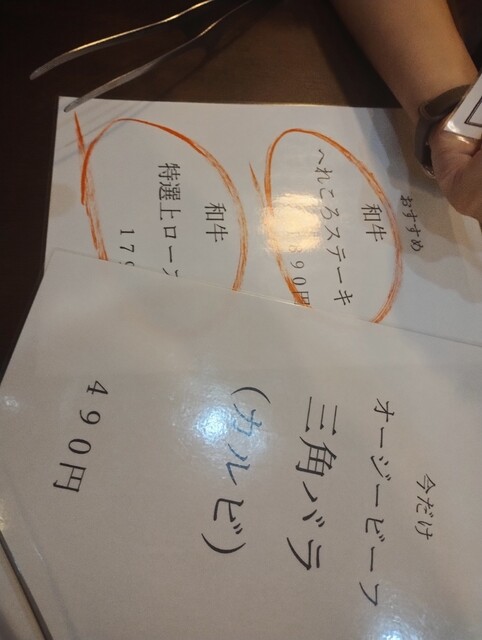 おすすめ
和牛
へれころステーキ
890円
和牛
特選上ロース
179
今だけ
オージービーフ
三角バラ
(カルビ)
490円